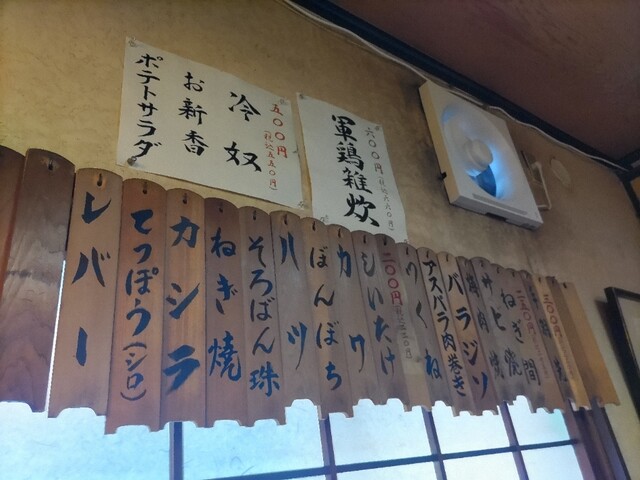 六〇〇円(税込六六〇円)
軍鶏雑炊
五〇〇円(税込五五〇円)
冷奴
お新香
ポテトサラダ
三〇〇円
二五〇円
バラジソ
アスパラ肉巻き
つくね
二〇〇円(税込二二〇円)
しいたけ
カワ
ぼんぼち
ハツ
そろばん珠
ねぎ焼
カシラ
てっぽう(シロ)
レバー